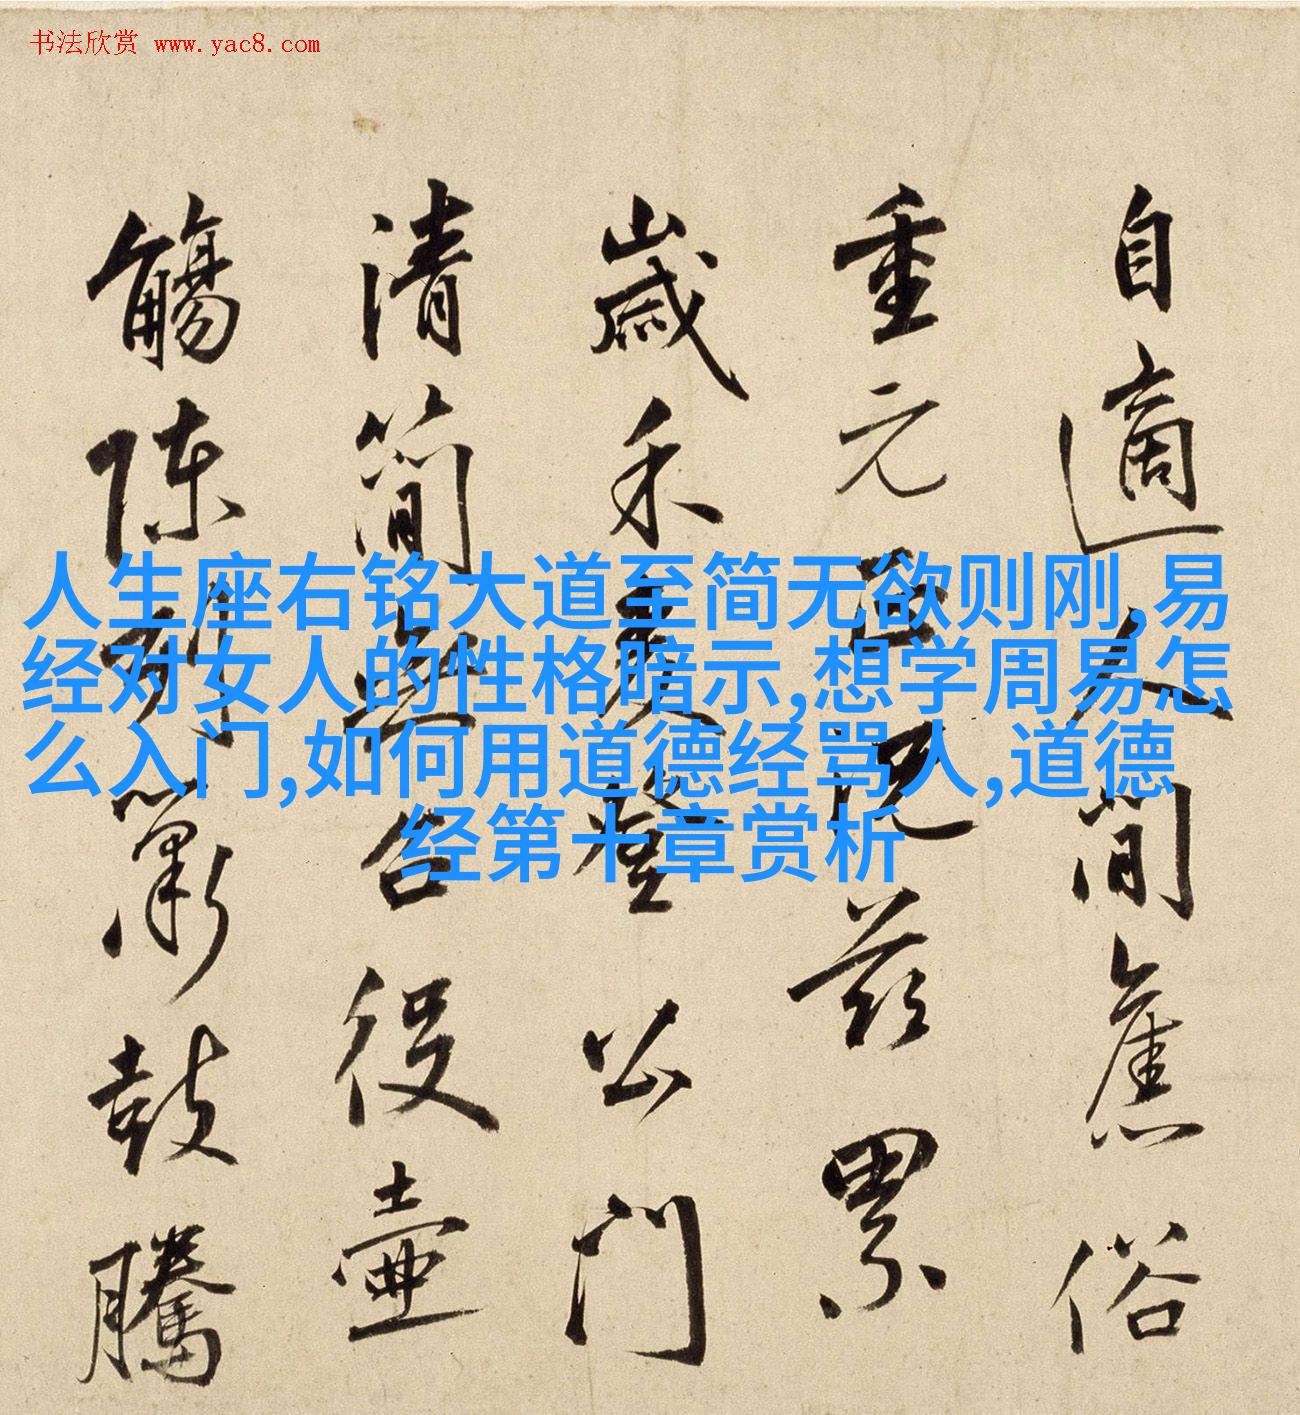 书法欣赏 www.yac8.com
自適人間舊俗
重元況茲累
歲禾黍登公門
清簡無役壺
觴陳列簫鼓騰
人生座右铭大道至简无欲则刚,易
经对女人的性格暗示,想学周易怎
么入门,如何用道德经骂人,道德
经第十章赏析